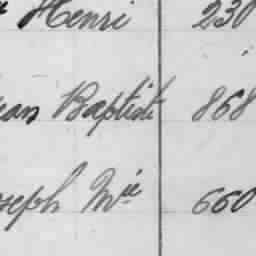 Henri 230
ean Baptiste 868
oseph Mie 660